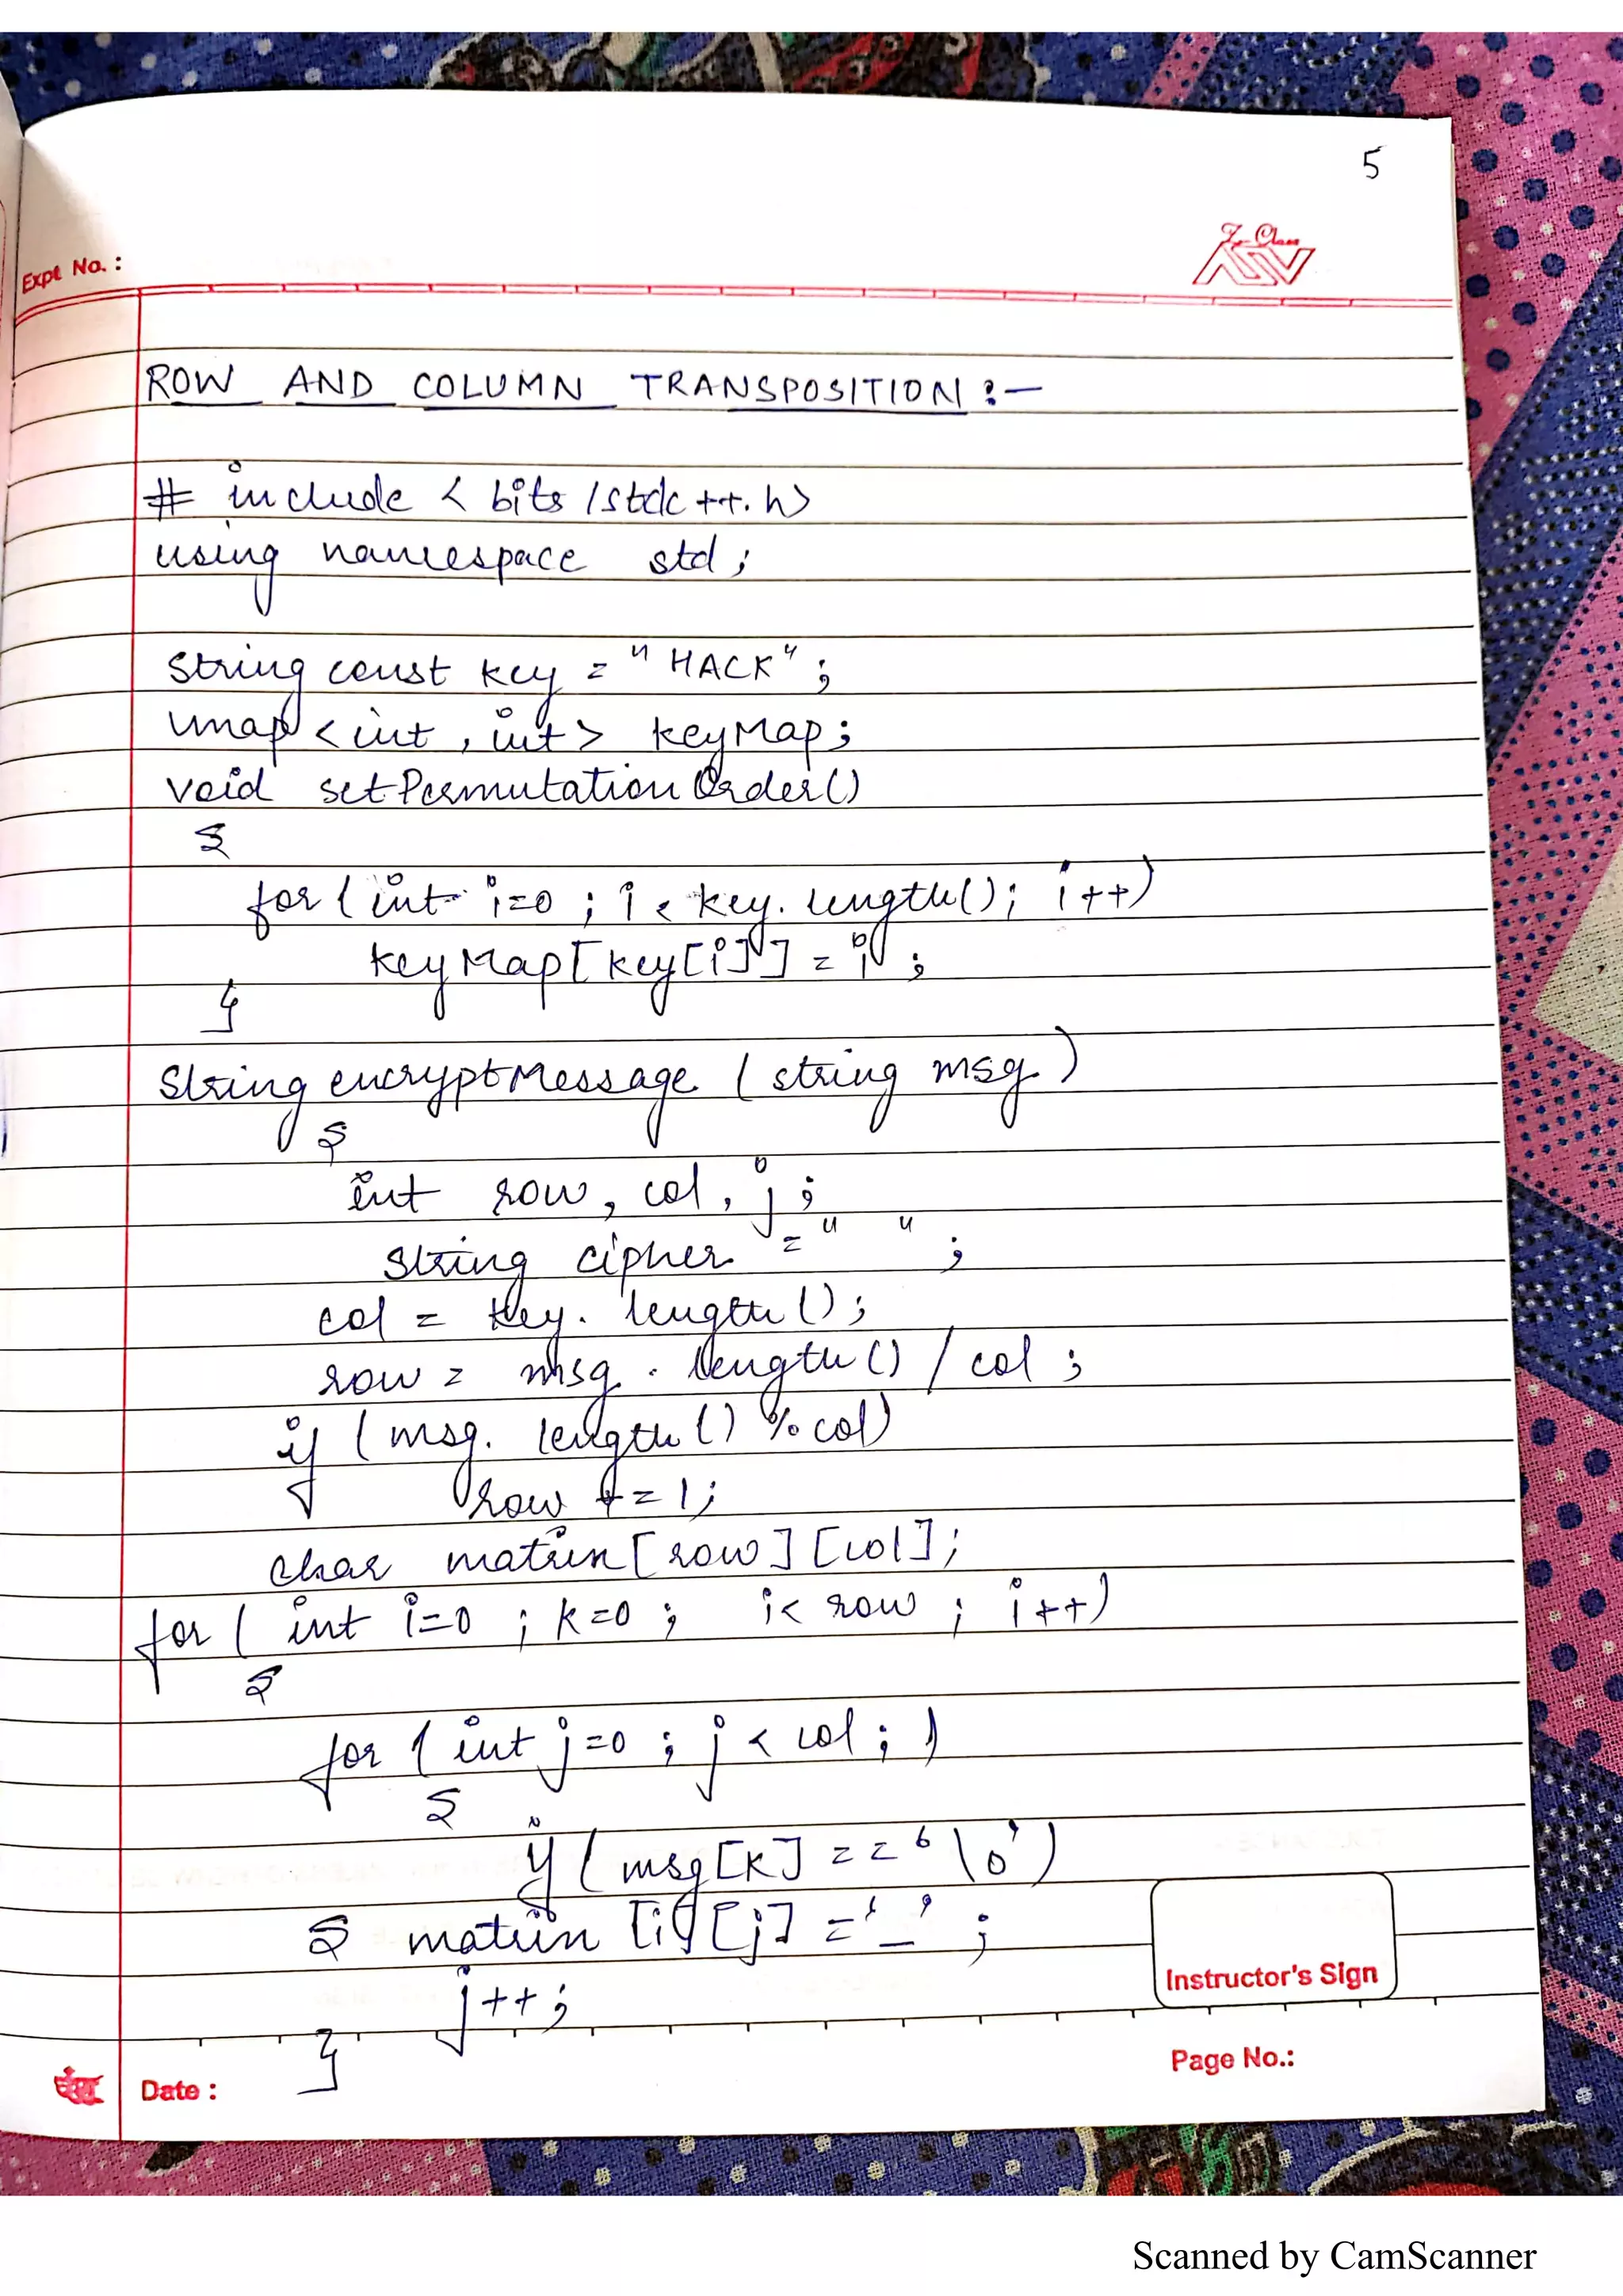 5
For Class
Expt. No. :
ROW AND COLUMN TRANSPOSITION :-
# include < bits /stdc ++. h>
using namespace std ;
string const key = "HACK" ;
map < int , int > keyMap ;
void setPermutationOrder()
{
for ( int i=0 ; i < key. length(); i++)
keyMap[ key[i] ] = i ;
}
String encryptMessage ( string msg )
{
int row, col, j ;
string cipher = " " ;
col = key. length () ;
row = msg . length () / col ;
if ( msg. length () % col)
row += 1 ;
char matrix [ row ] [ col ] ;
for ( int i=0 ; k=0 ; i< row ; i++)
{
for ( int j=0 ; j < col ; )
{
if ( msg[k] == '\0' )
{ matrix [i] [j] = '_' ;
j++ ;
}
Instructor's Sign
Page No.:
Date :
Scanned by CamScanner